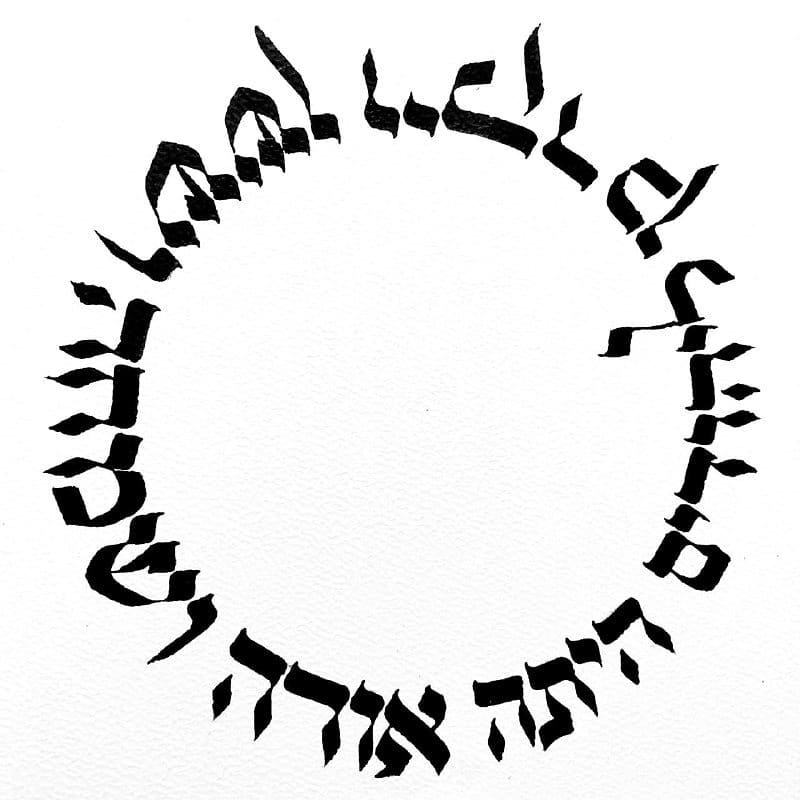 ליהודים היתה אורה ושמחה וששן ויקר